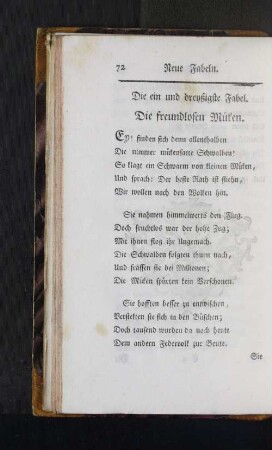 72 Neue Fabeln.
Die ein und dreyßigste Fabel.
Die freundlosen Müken.
Ey! finden sich denn allenthalben
Die nimmer mükensatte Schwalben!
So klagt ein Schwarm von kleinen Müken,
Und sprach: Der beste Rath ist fliehn,
Wir wollen nach den Wolken hin.
Sie nahmen himmelwerts den Flug.
Doch fruchtlos war der hohe Zug;
Mit ihnen flog ihr Ungemach.
Die Schwalben folgten ihnen nach,
Und fräßen sie bey Millionen;
Die Müken spürten kein Verschonen.
Sie hofften besser zu entwischen,
Verstekten sie sich in den Büschen;
Doch tausend wurden da noch heute
Dem andern Federvolk zur Beute.
Sie